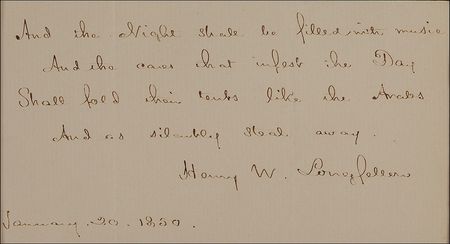 And the Night shall be filled with music
And the cares that infest the Day
Shall fold their tents like the Arabs
And as silently steal away.
Henry W. Longfellow
January. 20. 1850.